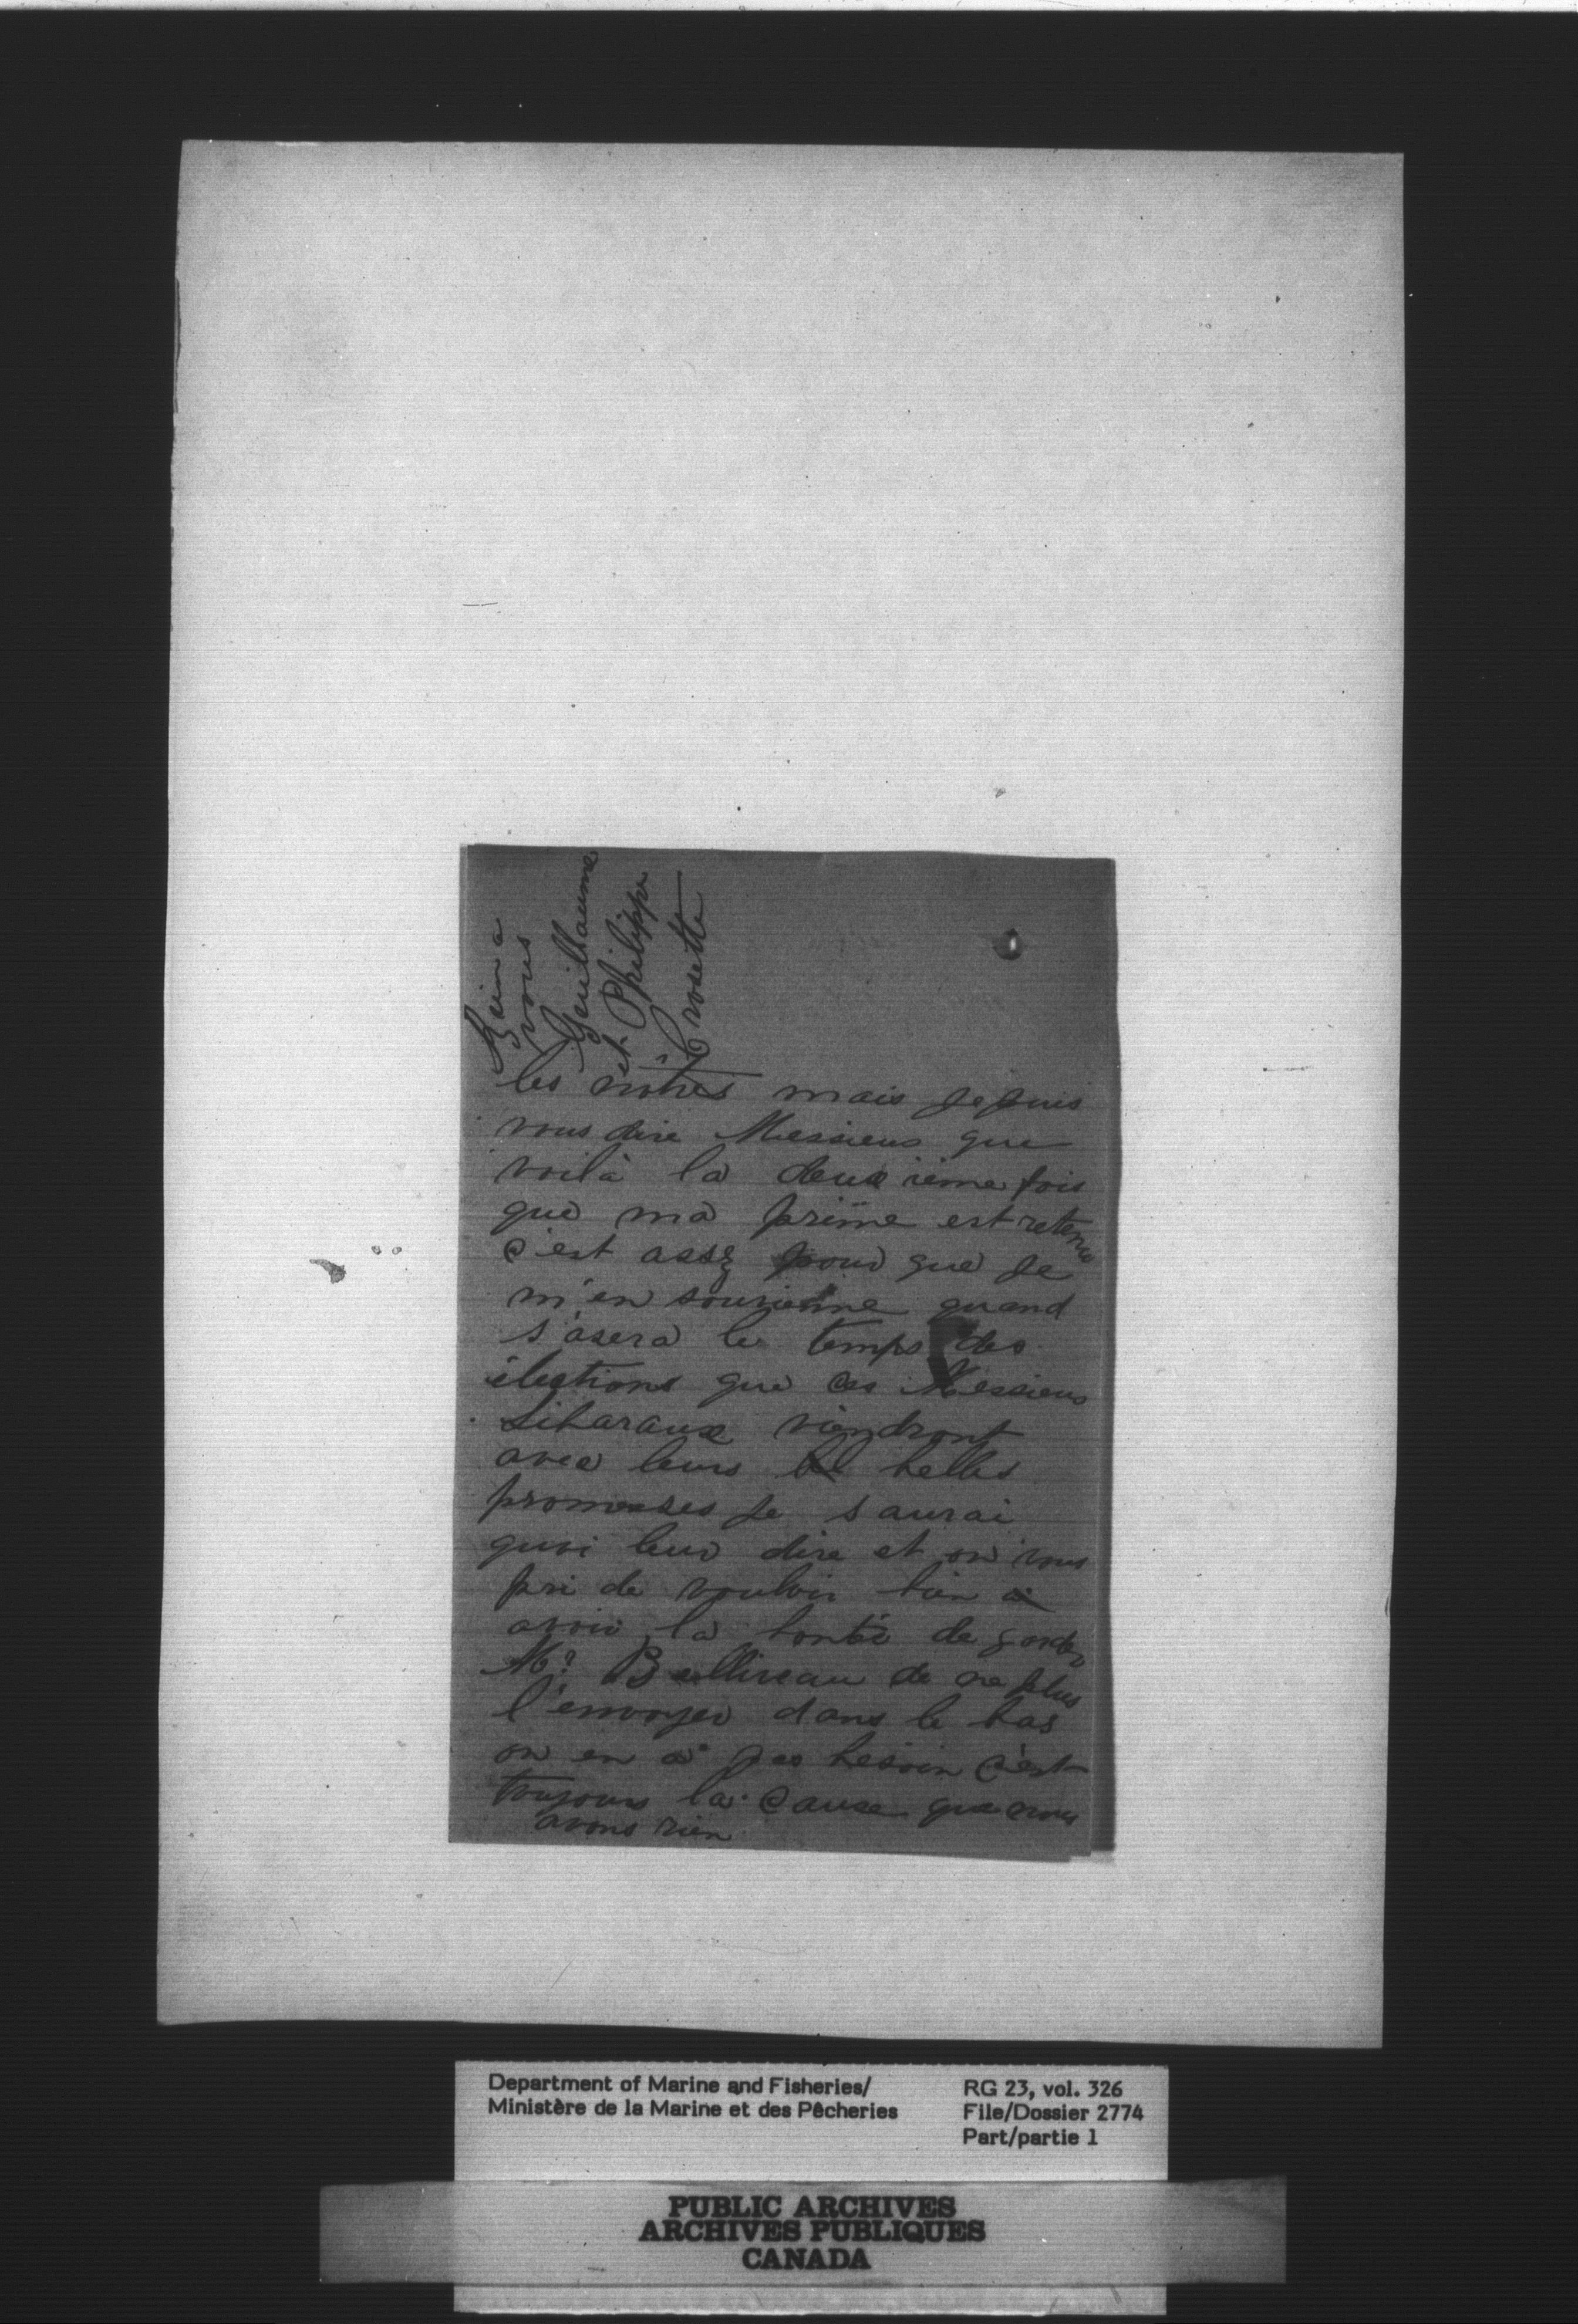 Bien a
vous
Guillaume
et Philippe
Grosette
les nôtres mais je puis
vous dire Messieus que
voilà la deuxième fois
que ma prime est retenue
c'est assez pour que je
m'en souvienne quand
s'asera le temps des
élections que ces Messieus
Libaraux viendront
avec leurs belles
promesses je saurai
quoi leur dire et on vous
pri de vouloir bien
avoir la bonté de garder
Mr. Belliveau de ne plus
l'envoyer dans le bas
on en a pas besoin c'est
toujours la cause que nous
avons rien
Department of Marine and Fisheries/
Ministère de la Marine et des Pêcheries
RG 23, vol. 326
File/Dossier 2774
Part/partie 1
PUBLIC ARCHIVES
ARCHIVES PUBLIQUES
CANADA